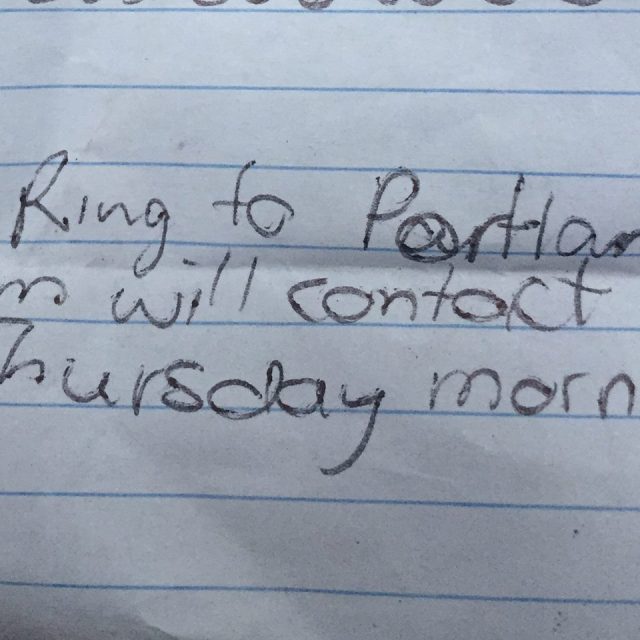 Ring to Portlan
m. will contact
Thursday morn